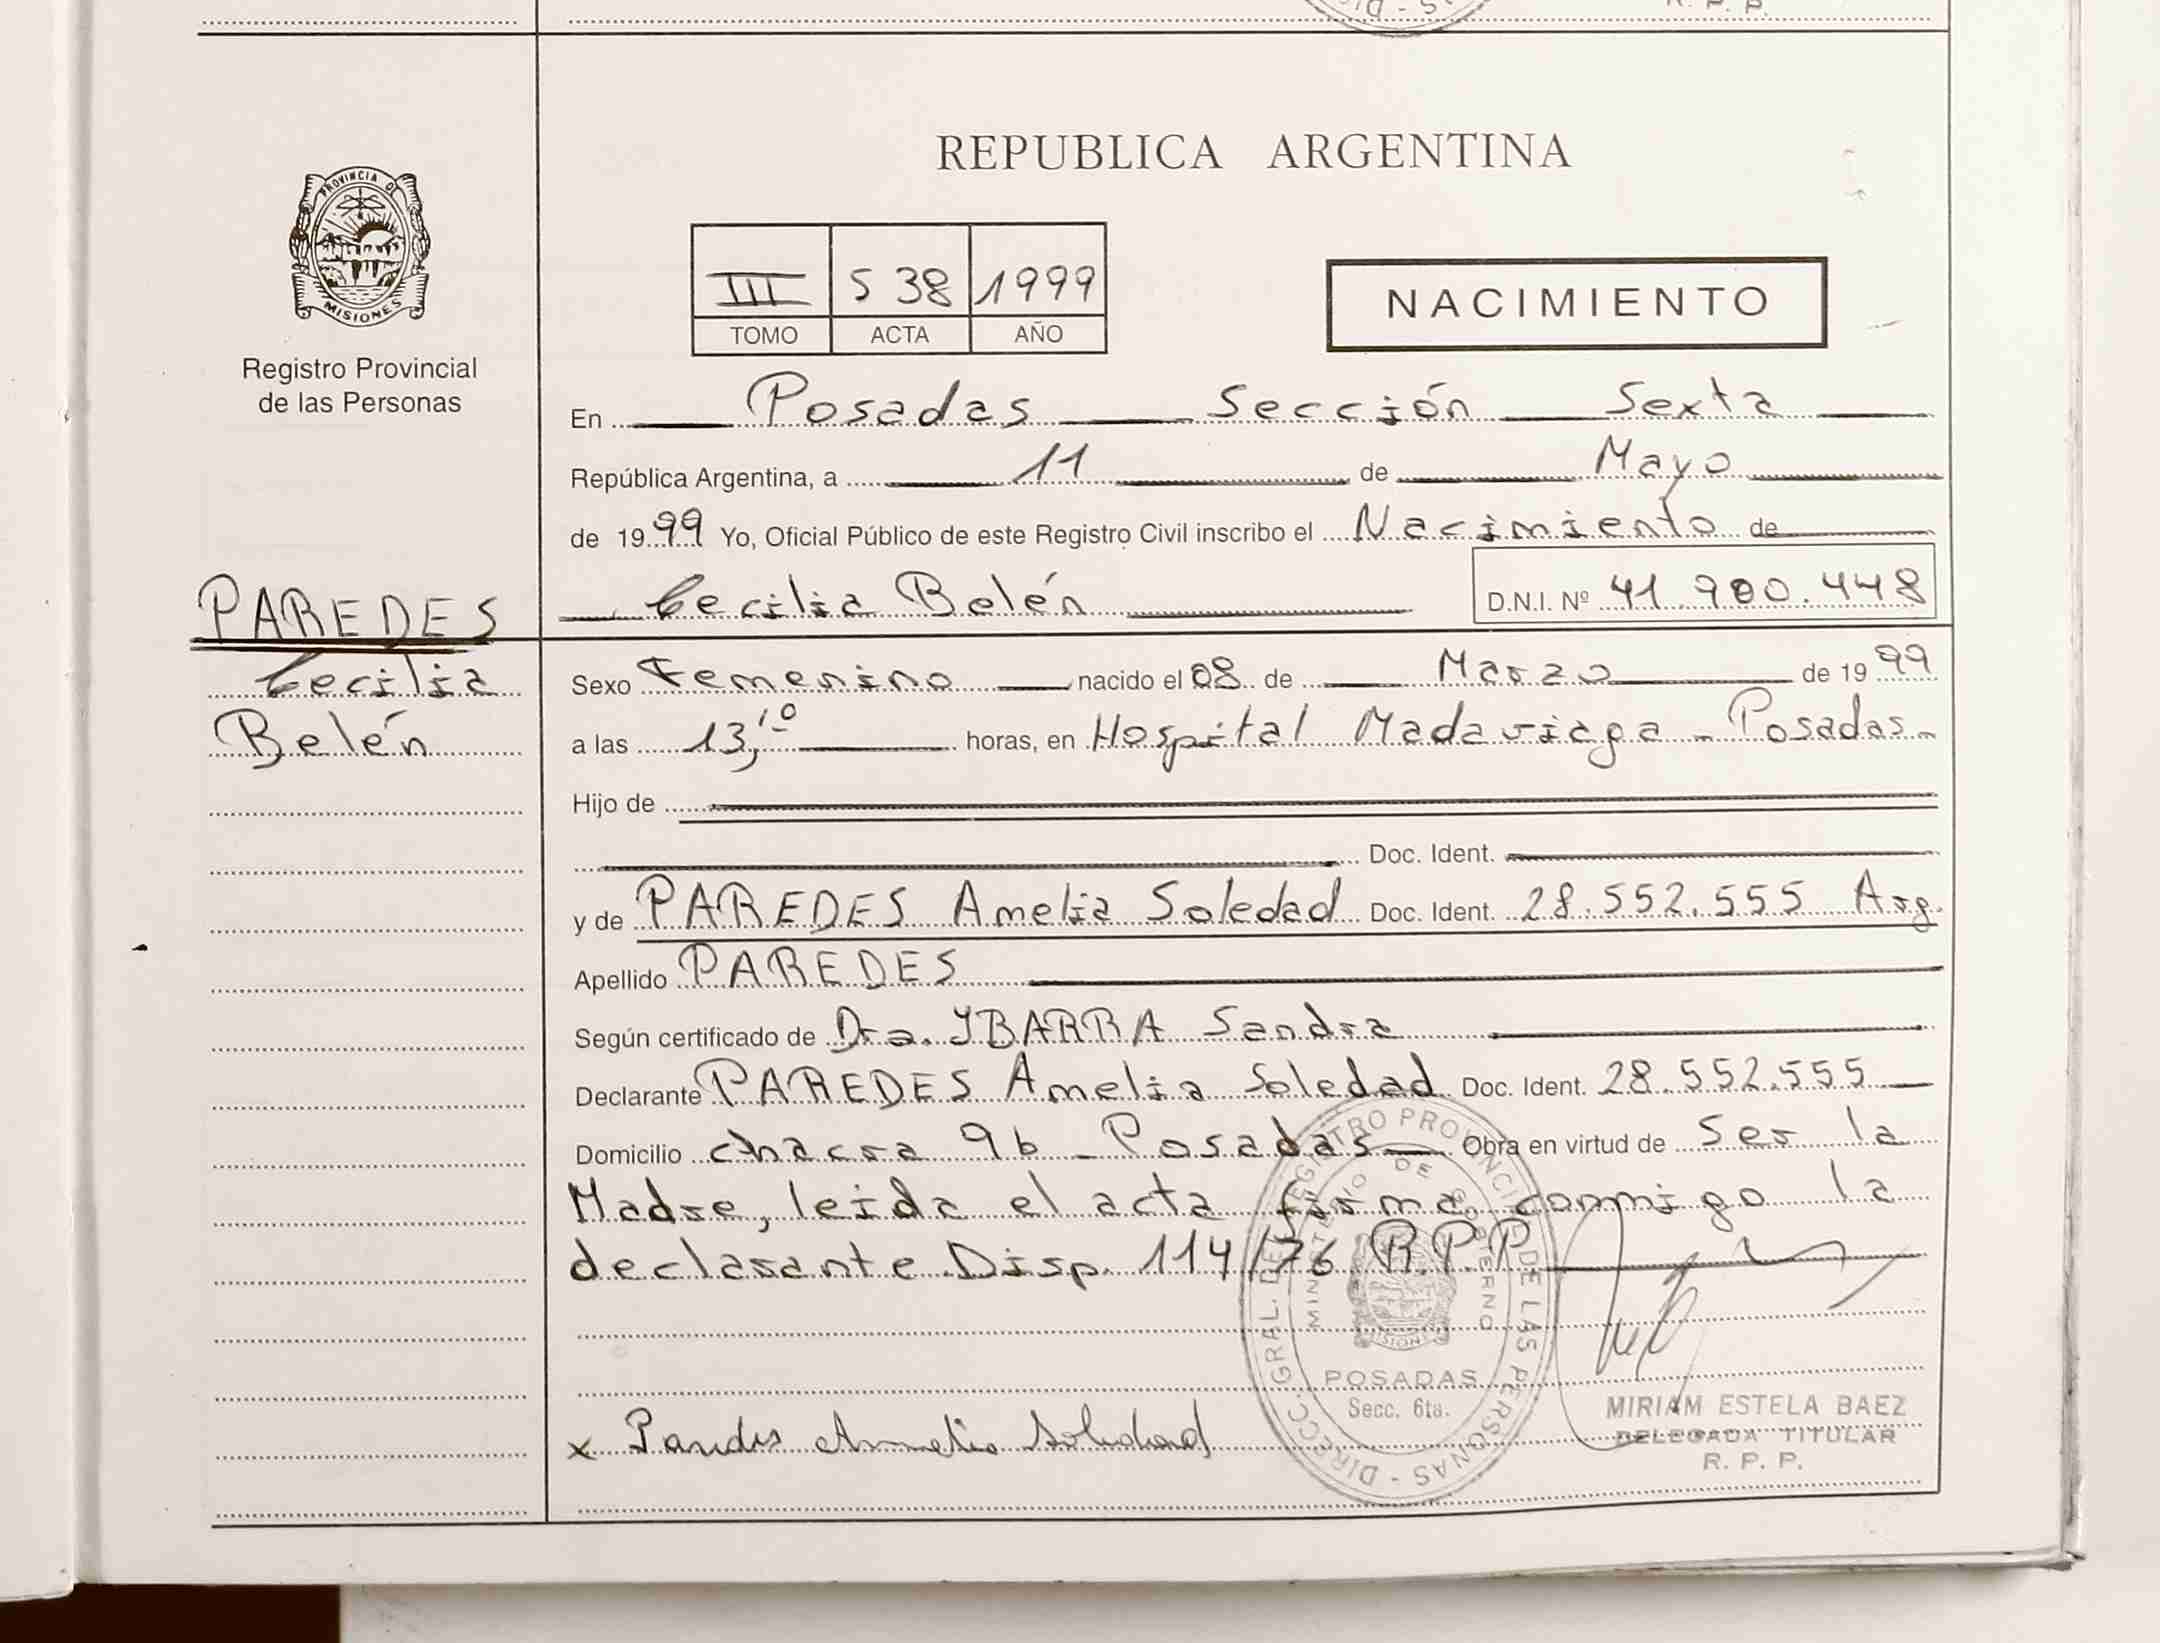 R. P. P.
REPUBLICA ARGENTINA
PROVINCIA DE
MISIONES
Registro Provincial
de las Personas
III 538 1999
TOMO ACTA AÑO
NACIMIENTO
En Posadas Sección Sexta
República Argentina, a 11 de Mayo
de 1999 Yo, Oficial Público de este Registro Civil inscribo el Nacimiento de
Cecilia Belén D.N.I. Nº 41.900.448
PAREDES
Cecilia
Belén
Sexo Femenino nacido el 08 de Marzo de 1999
a las 13,10 horas, en Hospital Madariaga - Posadas-
Hijo de
Doc. Ident.
y de PAREDES Amelia Soledad Doc. Ident. 28.552.555 Arg.
Apellido PAREDES
Según certificado de Dra. YBARRA Sandra
Declarante PAREDES Amelia Soledad Doc. Ident. 28.552.555
Domicilio chacra 96 - Posadas Obra en virtud de Ser la
Madre, leida el acta firma conmigo la
declarante Disp. 114/76 R.P.P.
DIRECC. GRAL. DEL REGISTRO PROVINCIAL DE LAS PERSONAS -
MINISTERIO DE GOBIERNO
MISIONES
POSADAS
Secc. 6ta.
x Paredes Amelia Soledad
MIRIAM ESTELA BAEZ
DELEGADA TITULAR
R. P. P.